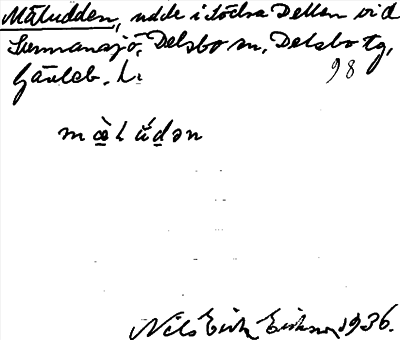 Måludden, udde i Södra Dellen vid
Sunnansjö, Delsbo sn, Delsbo tg,
Gävleb. L.
98
m æ̀ l ú̵ d ə n
Nils Erik Eriksson 1936.